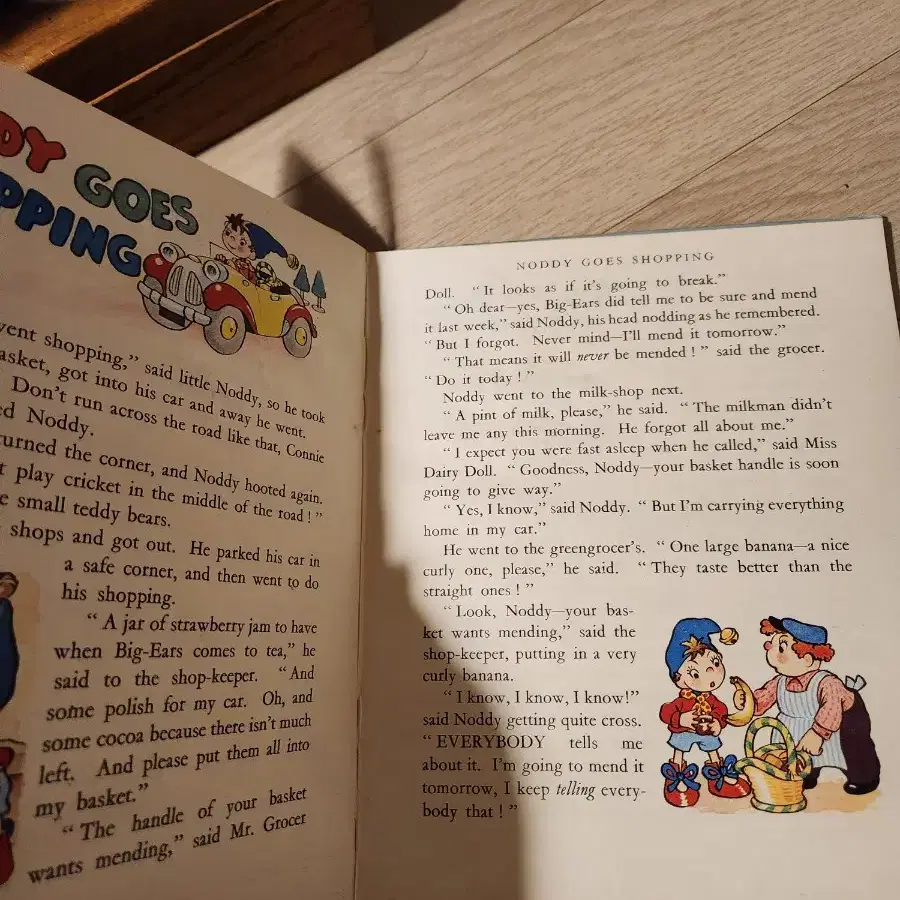 GOES
PPING
went shopping,” said little Noddy, so he took
asket, got into his car and away he went.
Don’t run across the road like that, Connie
Noddy.
turned the corner, and Noddy hooted again.
play cricket in the middle of the road ! ”
small teddy bears.
shops and got out. He parked his car in
a safe corner, and then went to do
his shopping.
“ A jar of strawberry jam to have
when Big-Ears comes to tea,” he
said to the shop-keeper. “ And
some polish for my car. Oh, and
some cocoa because there isn’t much
left. And please put them all into
my basket.”
“ The handle of your basket
wants mending,” said Mr. Grocer
NODDY GOES SHOPPING
Doll. “ It looks as if it’s going to break.”
“ Oh dear—yes, Big-Ears did tell me to be sure and mend
it last week,” said Noddy, his head nodding as he remembered.
“ But I forgot. Never mind—I’ll mend it tomorrow.”
“ That means it will never be mended ! ” said the grocer.
“ Do it today ! ”
Noddy went to the milk-shop next.
“ A pint of milk, please,” he said. “ The milkman didn’t
leave me any this morning. He forgot all about me.”
“ I expect you were fast asleep when he called,” said Miss
Dairy Doll. “ Goodness, Noddy—your basket handle is soon
going to give way.”
“ Yes, I know,” said Noddy. “ But I’m carrying everything
home in my car.”
He went to the greengrocer’s. “ One large banana—a nice
curly one, please,” he said. “ They taste better than the
straight ones ! ”
“ Look, Noddy—your bas-
ket wants mending,” said the
shop-keeper, putting in a very
curly banana.
“ I know, I know, I know!”
said Noddy getting quite cross.
“ EVERYBODY tells me
about it. I’m going to mend it
tomorrow, I keep telling every-
body that ! ”